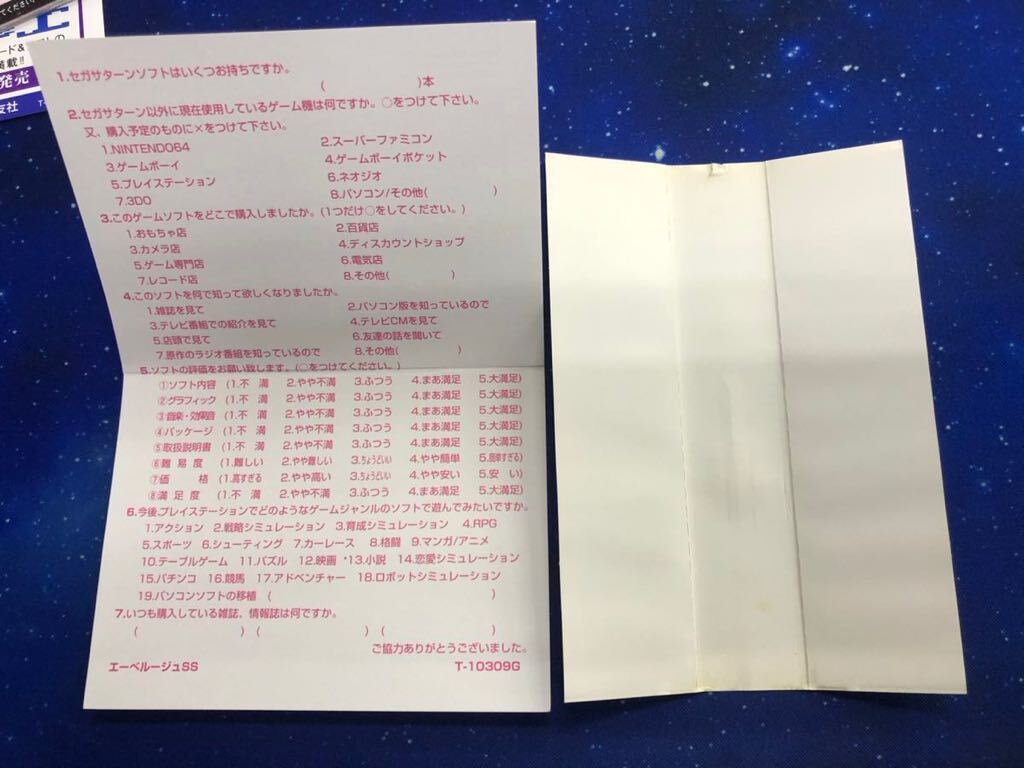 てください。
ード&
満載!!
発売
友社
1.セガサターンソフトはいくつお持ちですか。
( )本
2.セガサターン以外に現在使用しているゲーム機は何ですか。○をつけて下さい。
又、購入予定のものに×をつけて下さい。
1.NINTENDO64 2.スーパーファミコン
3.ゲームボーイ 4.ゲームボーイポケット
5.プレイステーション 6.ネオジオ
7.3DO 8.パソコン/その他( )
3.このゲームソフトをどこで購入しましたか。(1つだけ○をしてください。)
1.おもちゃ店 2.百貨店
3.カメラ店 4.ディスカウントショップ
5.ゲーム専門店 6.電気店
7.レコード店 8.その他( )
4.このソフトを何で知って欲しくなりましたか。
1.雑誌を見て 2.パソコン版を知っているので
3.テレビ番組での紹介を見て 4.テレビCMを見て
5.店頭で見て 6.友達の話を聞いて
7.原作のラジオ番組を知っているので 8.その他( )
5.ソフトの評価をお願い致します。(○をつけてください。)
①ソフト内容 (1.不 満 2.やや不満 3.ふつう 4.まあ満足 5.大満足)
②グラフィック (1.不 満 2.やや不満 3.ふつう 4.まあ満足 5.大満足)
③音楽・効果音 (1.不 満 2.やや不満 3.ふつう 4.まあ満足 5.大満足)
④パッケージ (1.不 満 2.やや不満 3.ふつう 4.まあ満足 5.大満足)
⑤取扱説明書 (1.不 満 2.やや不満 3.ふつう 4.まあ満足 5.大満足)
⑥難 易 度 (1.難しい 2.やや難しい 3.ちょうどいい 4.やや簡単 5.簡単すぎる)
⑦価 格 (1.高すぎる 2.やや高い 3.ちょうどいい 4.やや安い 5.安 い)
⑧満 足 度 (1.不 満 2.やや不満 3.ふつう 4.まあ満足 5.大満足)
6.今後、プレイステーションでどのようなゲームジャンルのソフトで遊んでみたいですか。
1.アクション 2.戦略シミュレーション 3.育成シミュレーション 4.RPG
5.スポーツ 6.シューティング 7.カーレース 8.格闘 9.マンガ/アニメ
10.テーブルゲーム 11.パズル 12.映画 13.小説 14.恋愛シミュレーション
15.パチンコ 16.競馬 17.アドベンチャー 18.ロボットシミュレーション
19.パソコンソフトの移植 ( )
7.いつも購入している雑誌、情報誌は何ですか。
( ) ( ) ( )
ご協力ありがとうございました。
エーベルージュSS T-10309G